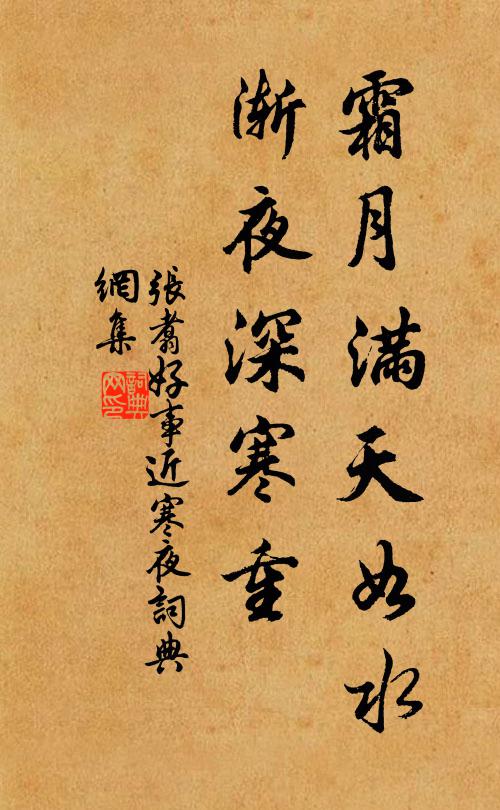 霜月满天如水
渐夜深寒重
張翥好事近寒夜詞典
網集
詞典
网印